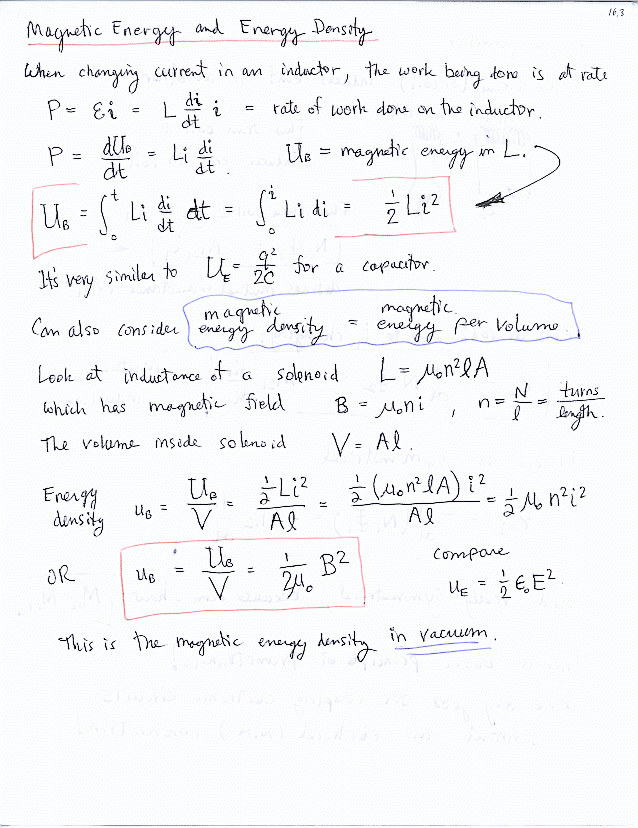 16.3
Magnetic Energy and Energy Density
When changing current in an inductor, the work being done is at rate
P = Ei = L di/dt i = rate of work done on the inductor.
P = dU_B/dt = Li di/dt. U_B = magnetic energy in L.
U_B = ∫₀ᵗ Li di/dt dt = ∫₀ⁱ Li di = 1/2 Li²
It's very similar to U_E = q²/2C for a capacitor.
Can also consider magnetic energy density = magnetic energy per volume.
Look at inductance of a solenoid L = μ₀n²lA
which has magnetic field B = μ₀ni , n = N/l = turns/length.
The volume inside solenoid V = Al.
Energy density u_B = U_B/V = 1/2 Li²/Al = 1/2 (μ₀n²lA) i²/Al = 1/2 μ₀ n²i²
OR u_B = U_B/V = 1/2μ₀ B² compare u_E = 1/2 ε₀E².
This is the magnetic energy density in vacuum.